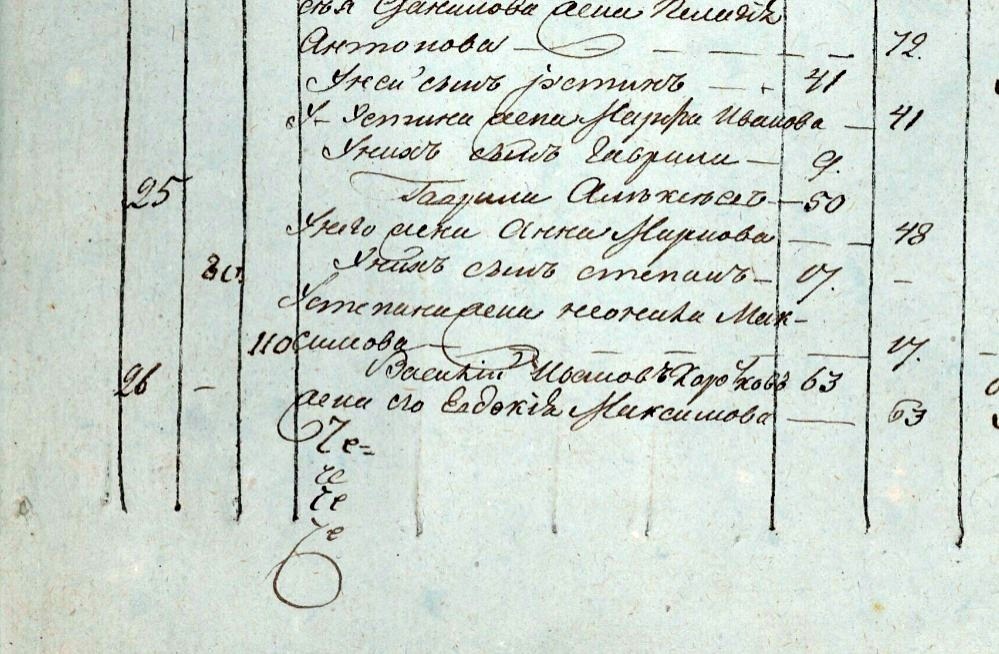 Данилова жена Пелагѣя
Антонова 72.
У ней сынъ Устинъ 41
У Устина жена Марфа Иванова 41
У нихъ сынъ Гаврила 9.
25 Гаврила Алѣксѣевъ 50
У него жена Анна Маркова 48
У нихъ сынъ Степанъ 17.
У Степана жена Мак-
симова 17.
26 Василій Ивановъ 63
жена его Евдокія Максимова 63